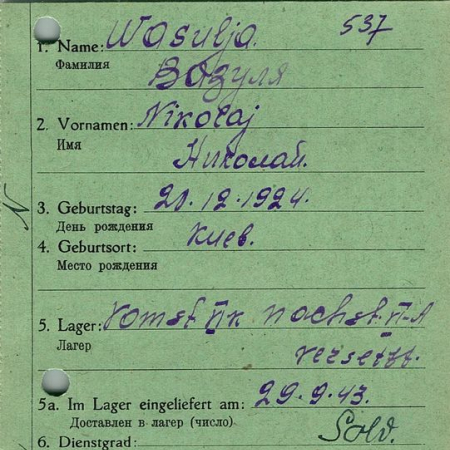 537
1. Name: Wasulja.
Фамилия Вазуля
2. Vornamen: Nikolaj
Имя Николай.
N
3. Geburtstag: 20.12.1924.
День рождения
4. Geburtsort: Киев.
Место рождения
5. Lager:
Лагер versetzt.
5a. Im Lager eingeliefert am: 29.9.43.
Доставлен в лагер (число)
6. Dienstgrad: Sold.